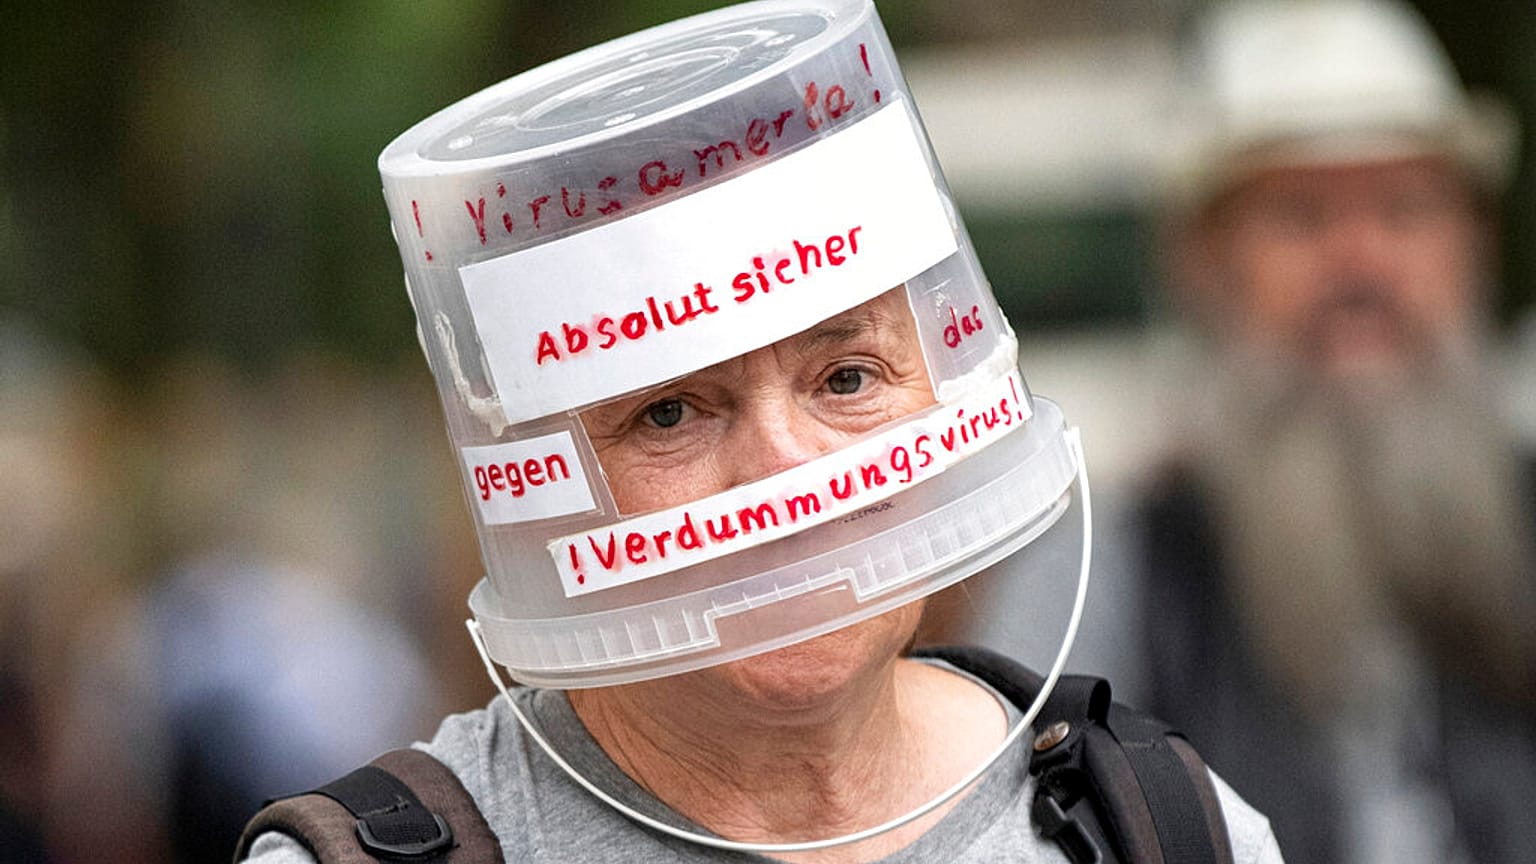 ! Virusamerla!
Absolut sicher
gegen das
!Verdummungsvirus!